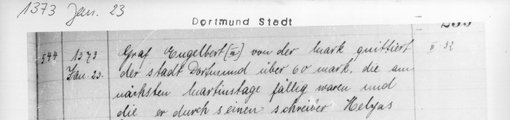 1373 Jan. 23
Dortmund Stadt
544 1373 Graf Engelbert [III] von der Mark quittiert II 32
Jan. 23. der Stadt Dortmund über 60 Mark, die am
nächsten Martinstage fällig waren und
die er durch seinen Schreiber Helyas